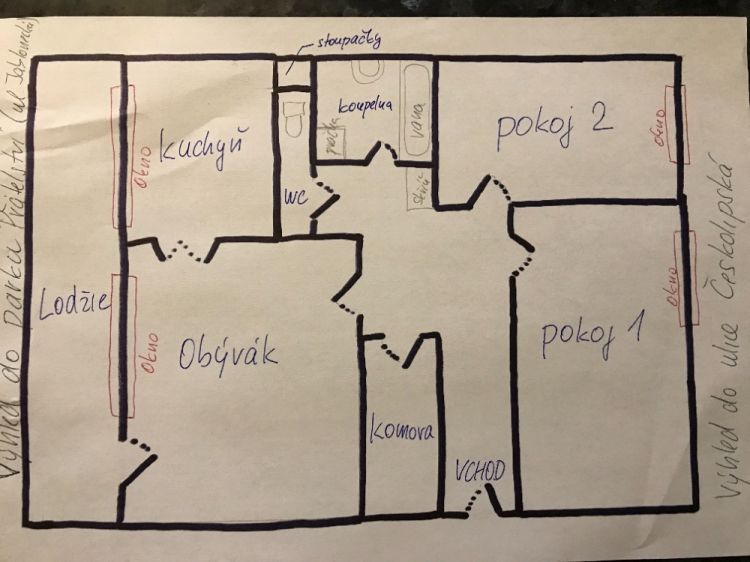 Výhled do parku Přátelství (ul Jablonecká)
stoupačky
okno
kuchyň
WC
koupelna
pračka
vana
skříň
pokoj 2
okno
Lodžie
okno
Obývák
komora
VCHOD
pokoj 1
okno
Výhled do ulice Českolipská